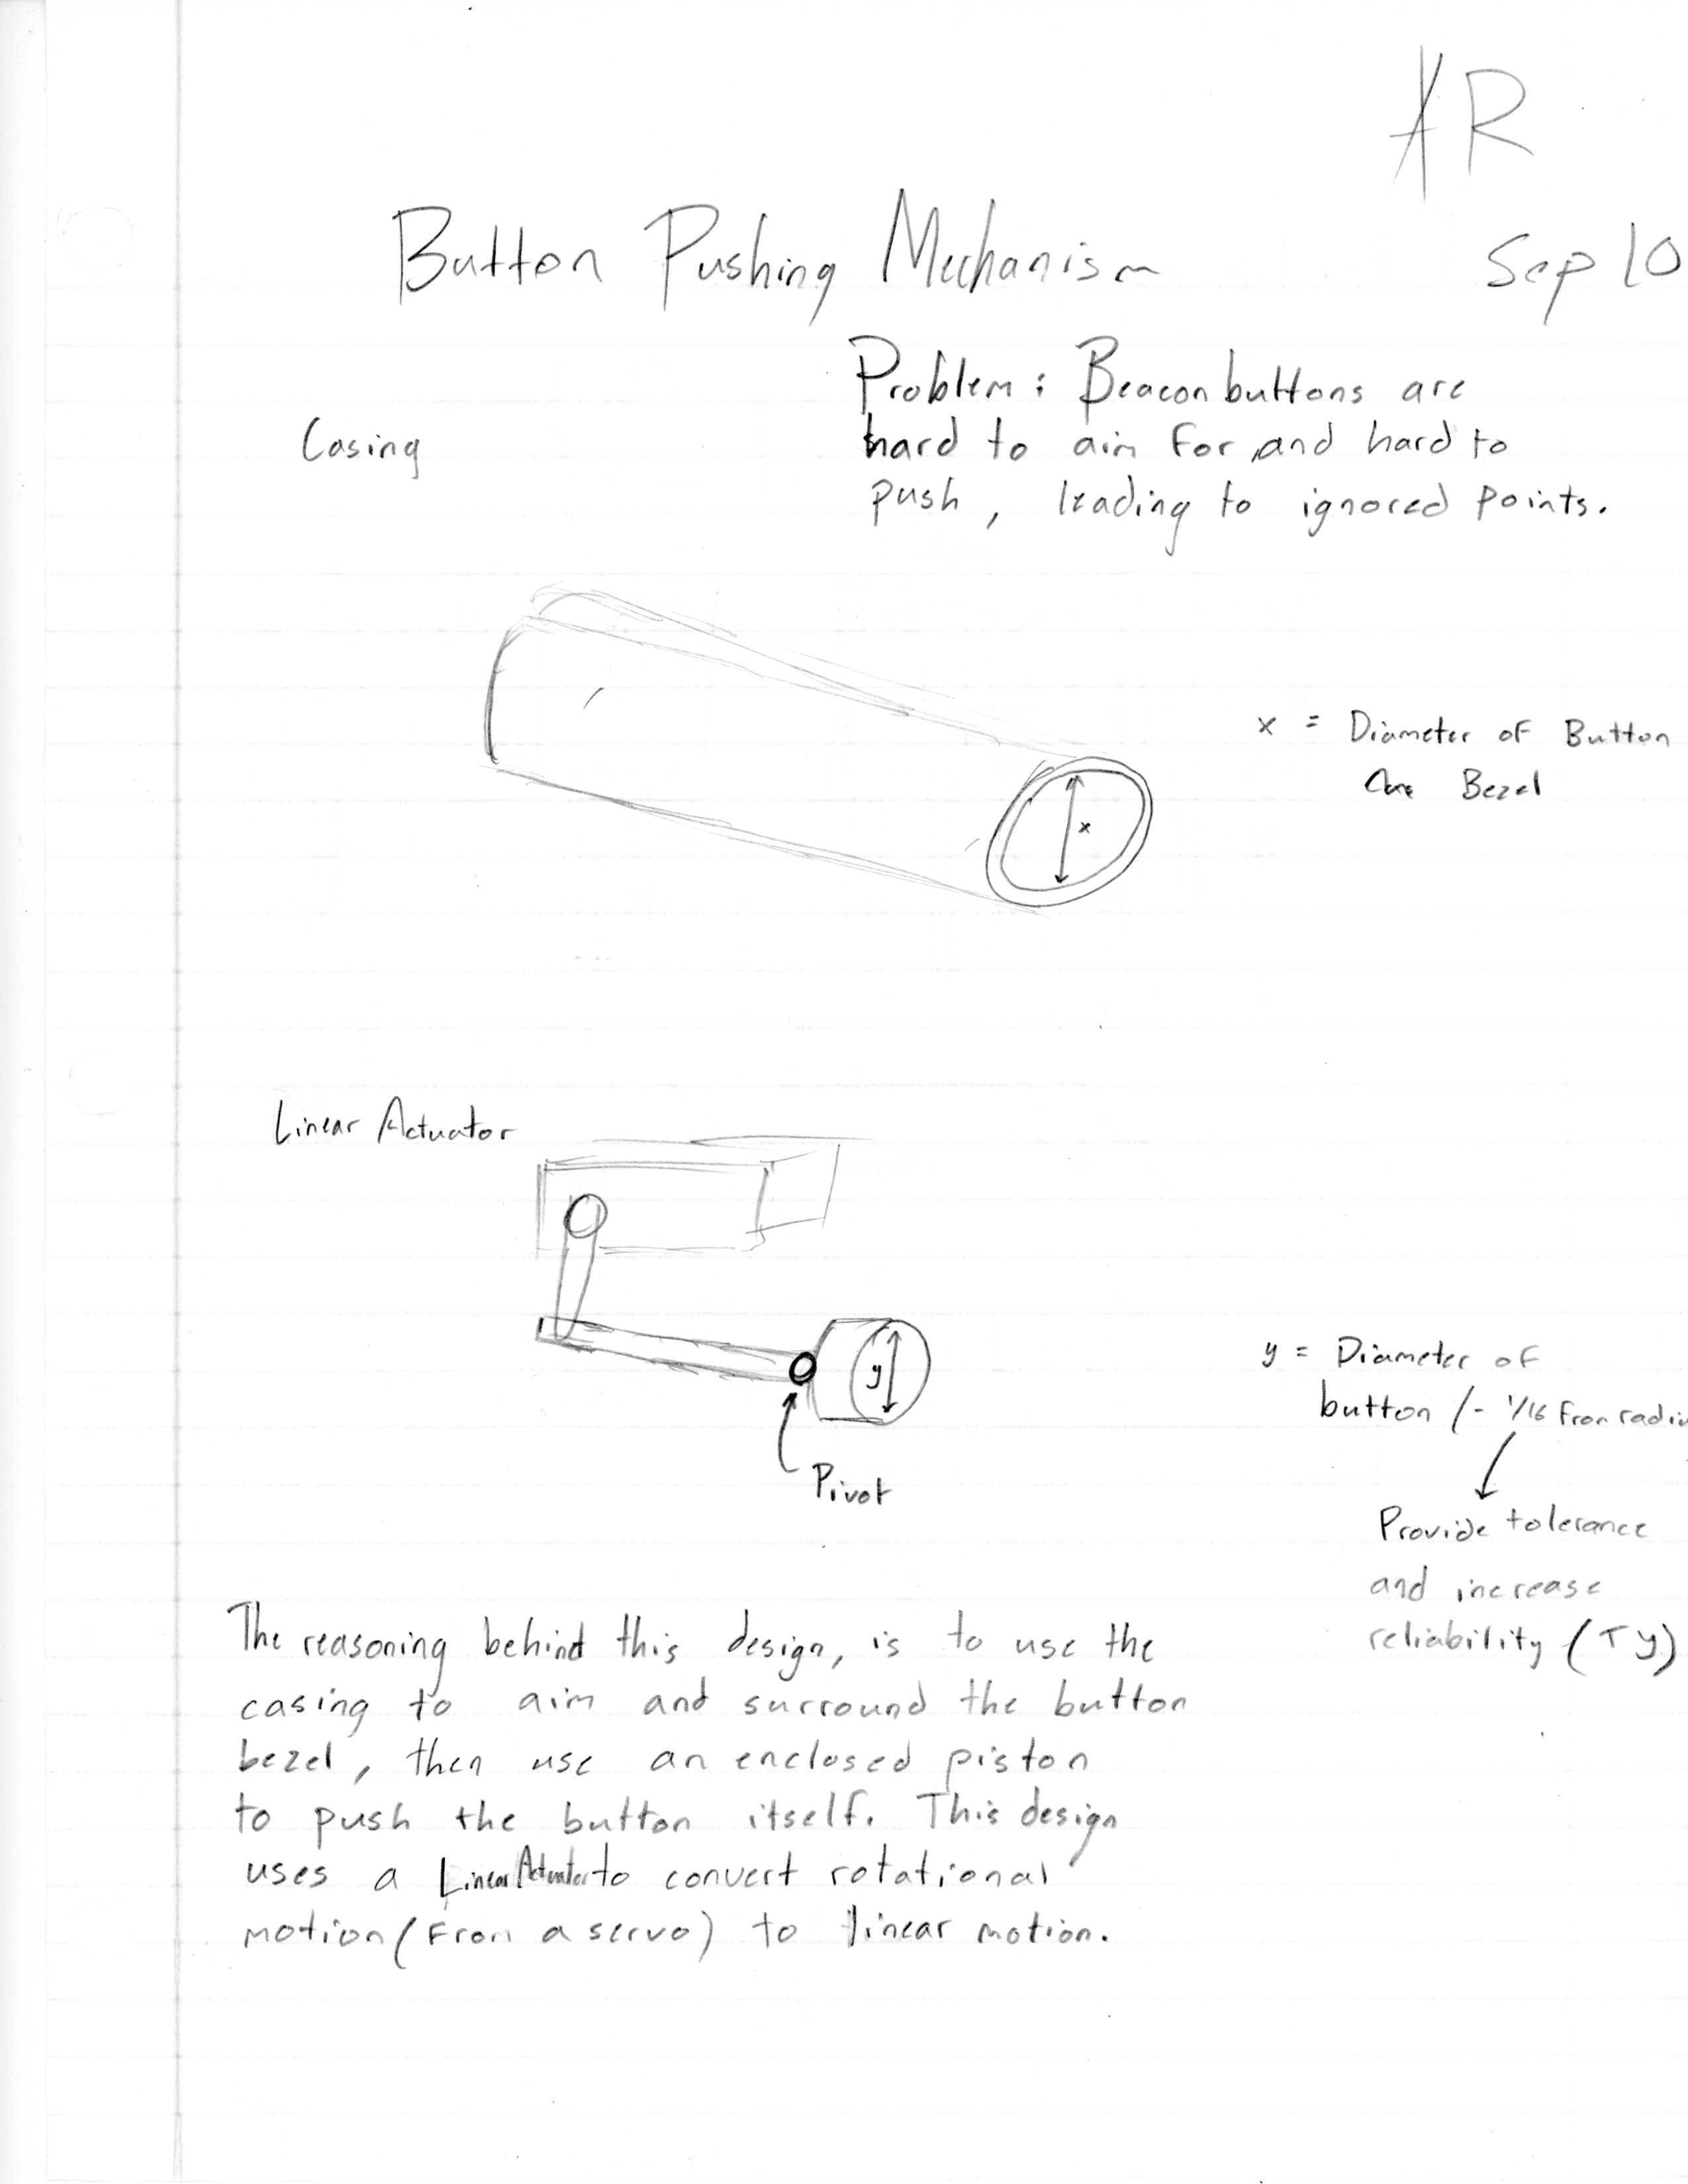 AR
Button Pushing Mechanism
Sep 10
Problem: Beacon buttons are
hard to aim for and hard to
push, leading to ignored points.
Casing
x = Diameter of Button
Bezel
x
Linear Actuator
y
Pivot
y = Diameter of
button /- 1/16 from radiu
Provide tolerance
and increase
reliability (TY)
The reasoning behind this design, is to use the
casing to aim and surround the button
bezel, then use an enclosed piston
to push the button itself. This design
uses a Linear Actuator to convert rotational
motion (From a servo) to linear motion.